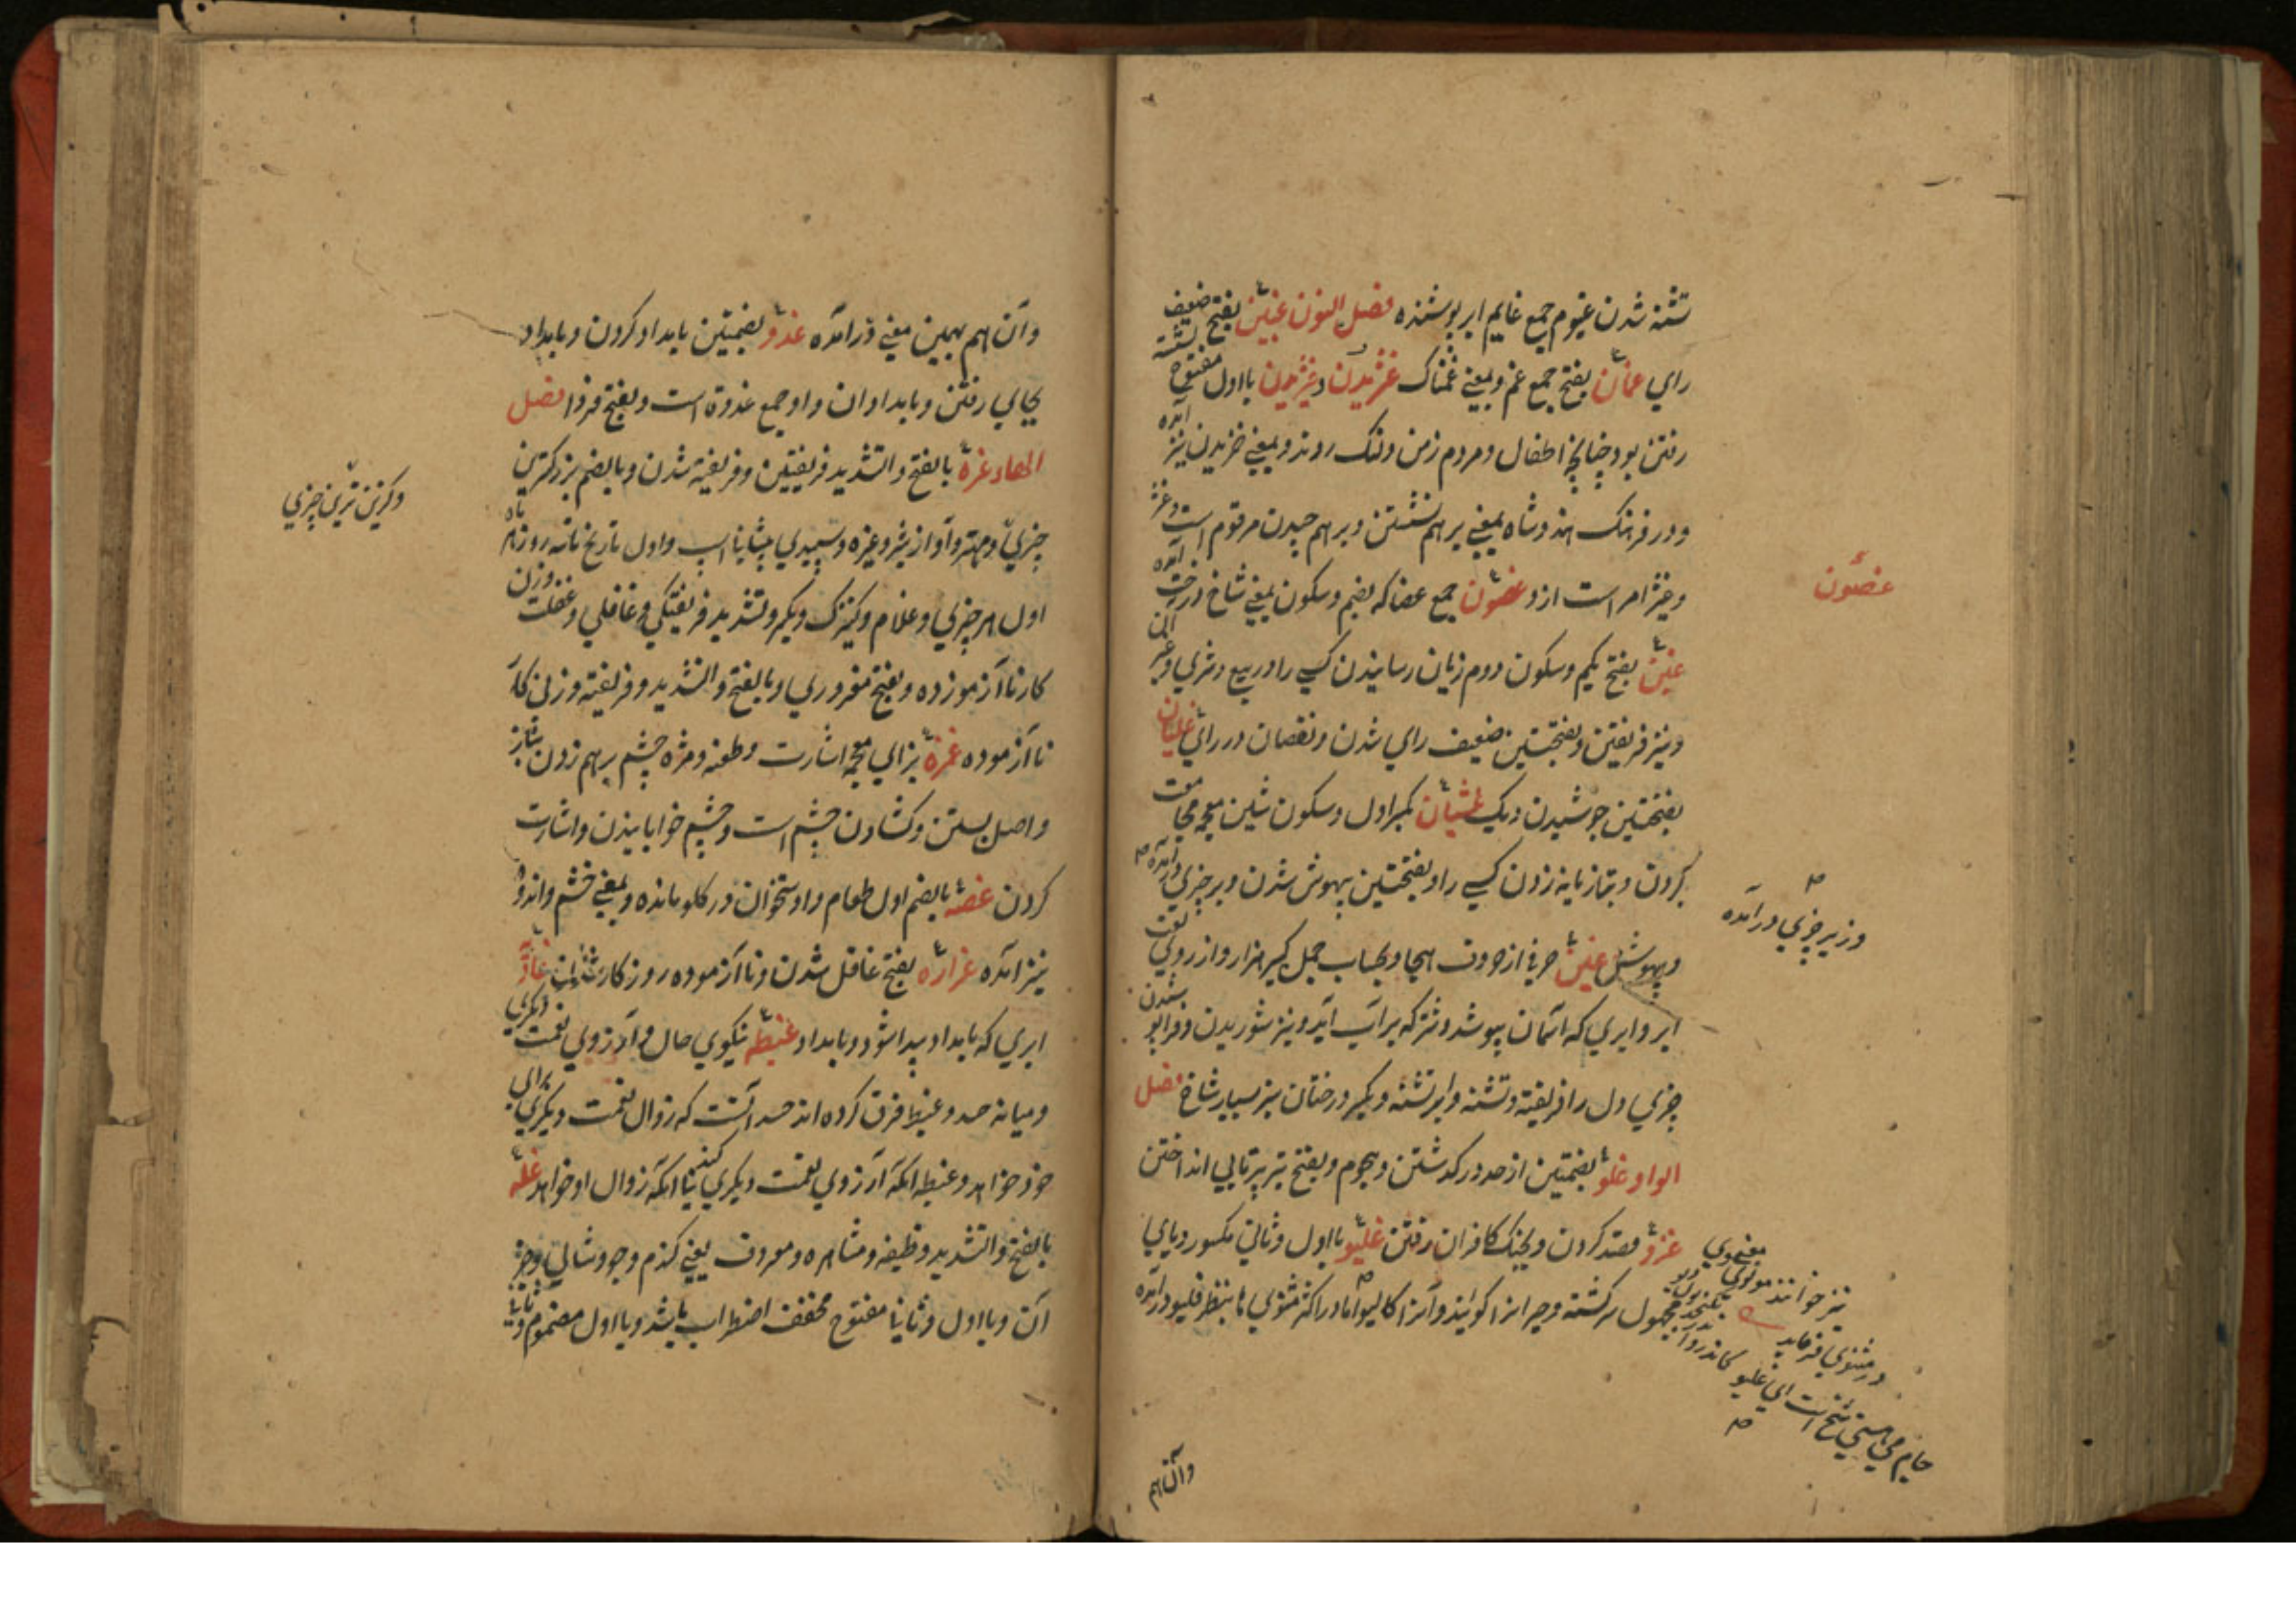 تشنه شدن غیوم جمع غایم ابر پوشنده فصل النون غبین بفتح ضعیف
رای غمان بفتح جمع غم و بمعنی غمناک غژیدن و غیژیدن بااول مفتوح نشسته
رفتن بود چنانچه اطفال و مردم زمن و لنک روند و بمعنی خزیدن نیز آمده
و در فرهنک هندوشاه بمعنی بر هم نشستن و بر هم چیدن مرقوم است و غژ
و غیژ امر است ازو غصون جمع غصا که بضم و سکون بمعنی شاخ درخت آمده
غصون
غبن بفتح یکم و سکون دوم زیان رسانیدن کسی را در بیع و شری و غیر آن
و نیز فریفتن و بفتحتین ضعیف رای شدن و نقصان در رای غلیان
بفتحتین جوشیدن دیک غشیان بکسر اول و سکون شین معجمه مجامعت
کردن و بتازیانه زدن کسی را و بفتحتین بیهوش شدن و بر چیزی درآمده
و زیر چیزی درآمده
و بیهوشی غین حرفی از حروف هجا و بحساب جمل کبیر هزار و از روی لغت
ابر و ابری که آسمان بپوشد و نیز که بر آب آید و نیز شوریدن و فرا پوشیدن
چیزی دل را فریفته و تشنه و ابر تشنه و بکسر درختان بسیار شاخ فصل
الواو غلو بضمتین از حد در گذشتن و هجوم و بفتح تیر پرتابی انداختن
غزو قصد کردن و بجنک کافران رفتن غلیو بااول و ثانی مکسور و یای
مجهول سرکشته و حیران را کویند و آنرا کالیو اما در اکثر مثنوی بنظر قلیو درآمده
نیز خوانند مولوی معنوی
در مثنوی فرماید
وآن هم
وآن هم بهمین معنی درآمده غدو بضمتین بامداد کردن و بامداد
بجای رفتن و بامدادان و او جمع غدوة است و بفتح فردا فصل
الهاء غره بالفتح والتشدید فریفتن و فریفته شدن و بالضم بزرکترین
چیزی و مهتر و آواز شیر و غیره و سپیدی پیشانی اسپ و اول تاریخ تا سه روز ماه
و کزین ترین چیزی
اول هر چیزی و غلام و کنیزک و بکسر و تشدید فریفتکی و غافلی و غفلت و زن
کار ناآزموده و بفتح مغروری و بالفتح والتشدید و فریفته و زن کار
ناآزموده غمزه بزای معجمه اشارت و طعنه و مژه چشم برهم زدن بناز
و اصل بستن و کشادن چشم است و چشم خوابانیدن و اشارت
کردن غصه بالضم اول طعام و استخوان در کلو مانده و بمعنی خشم و اندوه
نیز آمده غراره بفتح غافل شدن و ناآزموده روزکار شدن غادة
ابری که بامداد پیدا شود و بامداد غبطه نیکوی حال و آرزوی نعمت دیکری
و میانه حسد و غبطه فرق کرده اند حسد آنست که زوال نعمت دیکری برای
خود خواهد و غبطه آنکه آرزوی نعمت دیکری کند بی آنکه زوال او خواهد غله
بالفتح والتشدید وظیفه و مشاهره و معروف یعنی کندم و جو و شالی و جز
آن و بااول و ثانیا مفتوح مخفف اضطراب باشد و بااول مضموم و ثانیا